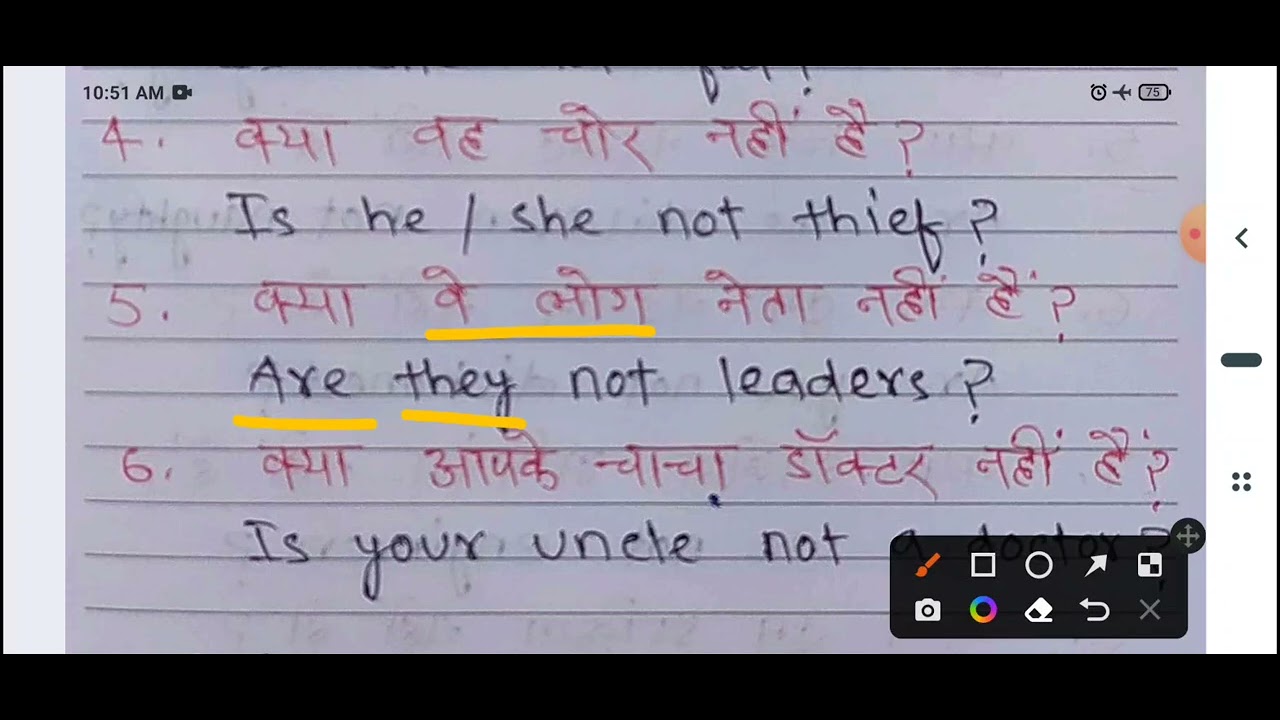 10:51 AM 75
4. क्या वह चोर नहीं है?
Is he / she not thief?
5. क्या वे लोग नेता नहीं हैं?
Are they not leaders?
6. क्या आपके चाचा डॉक्टर नहीं हैं?
Is your uncle not a doctor?